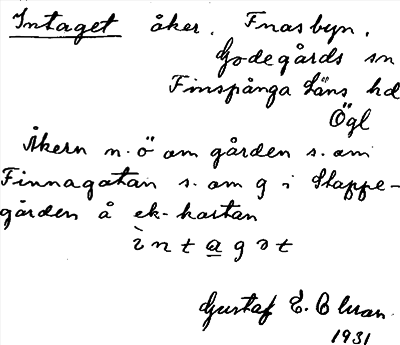 Intaget åker. Fnasbyn.
Godegårds sn
Finspånga Läns hd
Ögl
Åkern n.ö om gården s. om
Finnagatan s. om g i Stappe-
gården å ek-kartan
ìntagət
Gustaf E.
1931